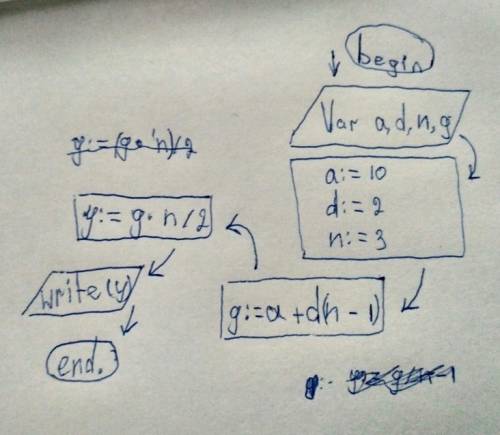 begin
Var a,d,n,g
a:= 10
d:= 2
n:= 3
g:=a+d(n-1)
y:= g·n/2
write(y)
end.